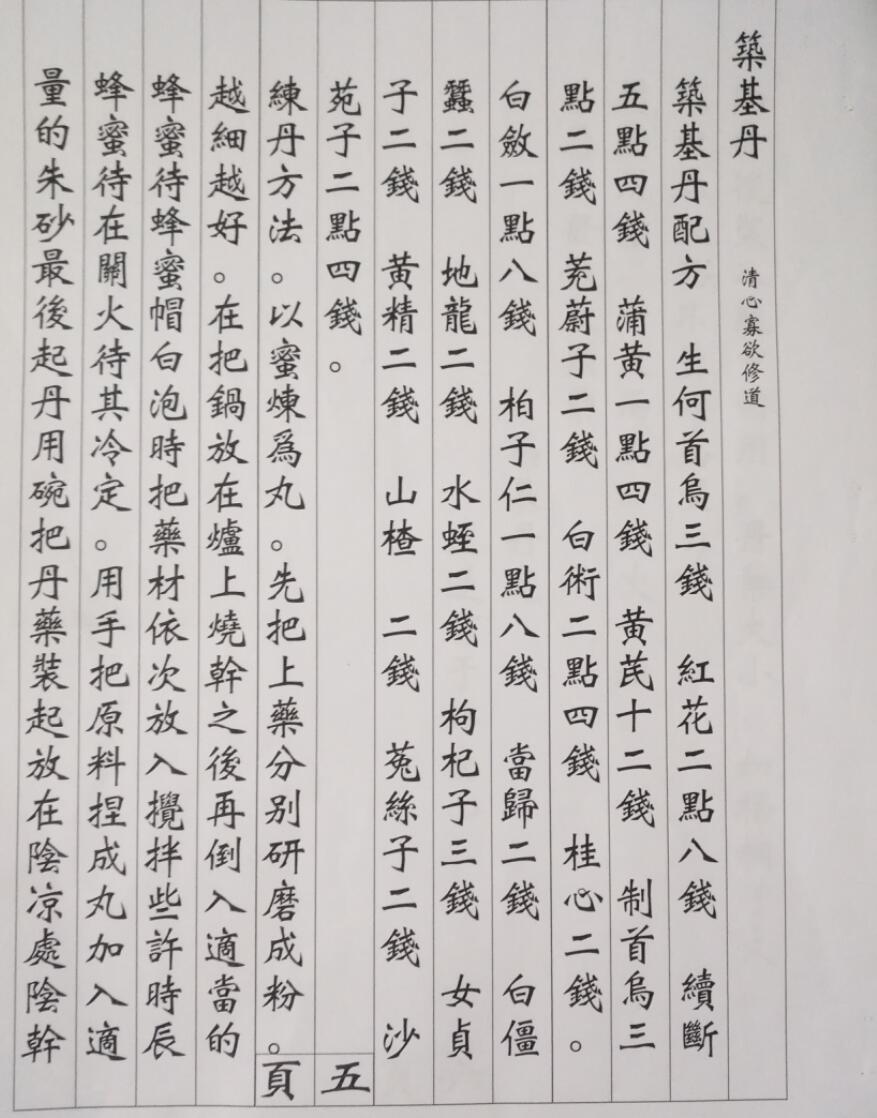 築基丹 清心寡欲修道
築基丹配方 生何首烏三錢 紅花二點八錢 續斷
五點四錢 蒲黃一點四錢 黃芪十二錢 制首烏三
點二錢 茺蔚子二錢 白術二點四錢 桂心二錢。
白斂一點八錢 柏子仁一點八錢 當歸二錢 白僵
蠶二錢 地龍二錢 水蛭二錢 枸杞子三錢 女貞
子二錢 黃精二錢 山楂 二錢 菟絲子二錢 沙
苑子二點四錢。
五
練丹方法。以蜜煉爲丸。先把上藥分別研磨成粉。
頁
越細越好。在把鍋放在爐上燒幹之後再倒入適當的
蜂蜜待蜂蜜帽白泡時把藥材依次放入攪拌些許時辰
蜂蜜待在關火待其冷定。用手把原料捏成丸加入適
量的朱砂最後起丹用碗把丹藥裝起放在陰凉處陰幹